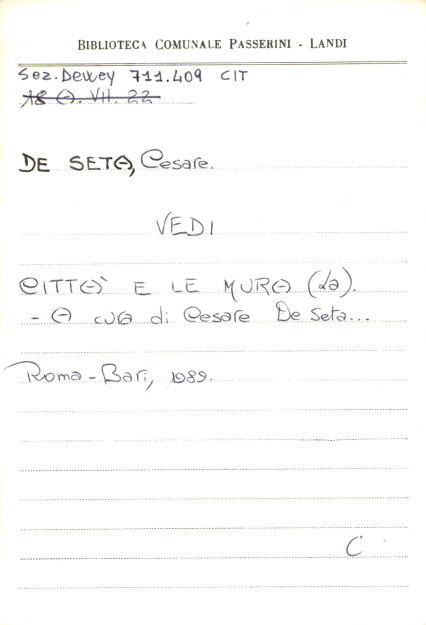 BIBLIOTECA COMUNALE PASSERINI - LANDI
Sez. Dewey 711.409 CIT
18 A. VII. 22
DE SETA, Cesare.
VEDI
CITTA' E LE MURA (La).
- A cura di Cesare De Seta...
Roma - Bari, 1989.
C